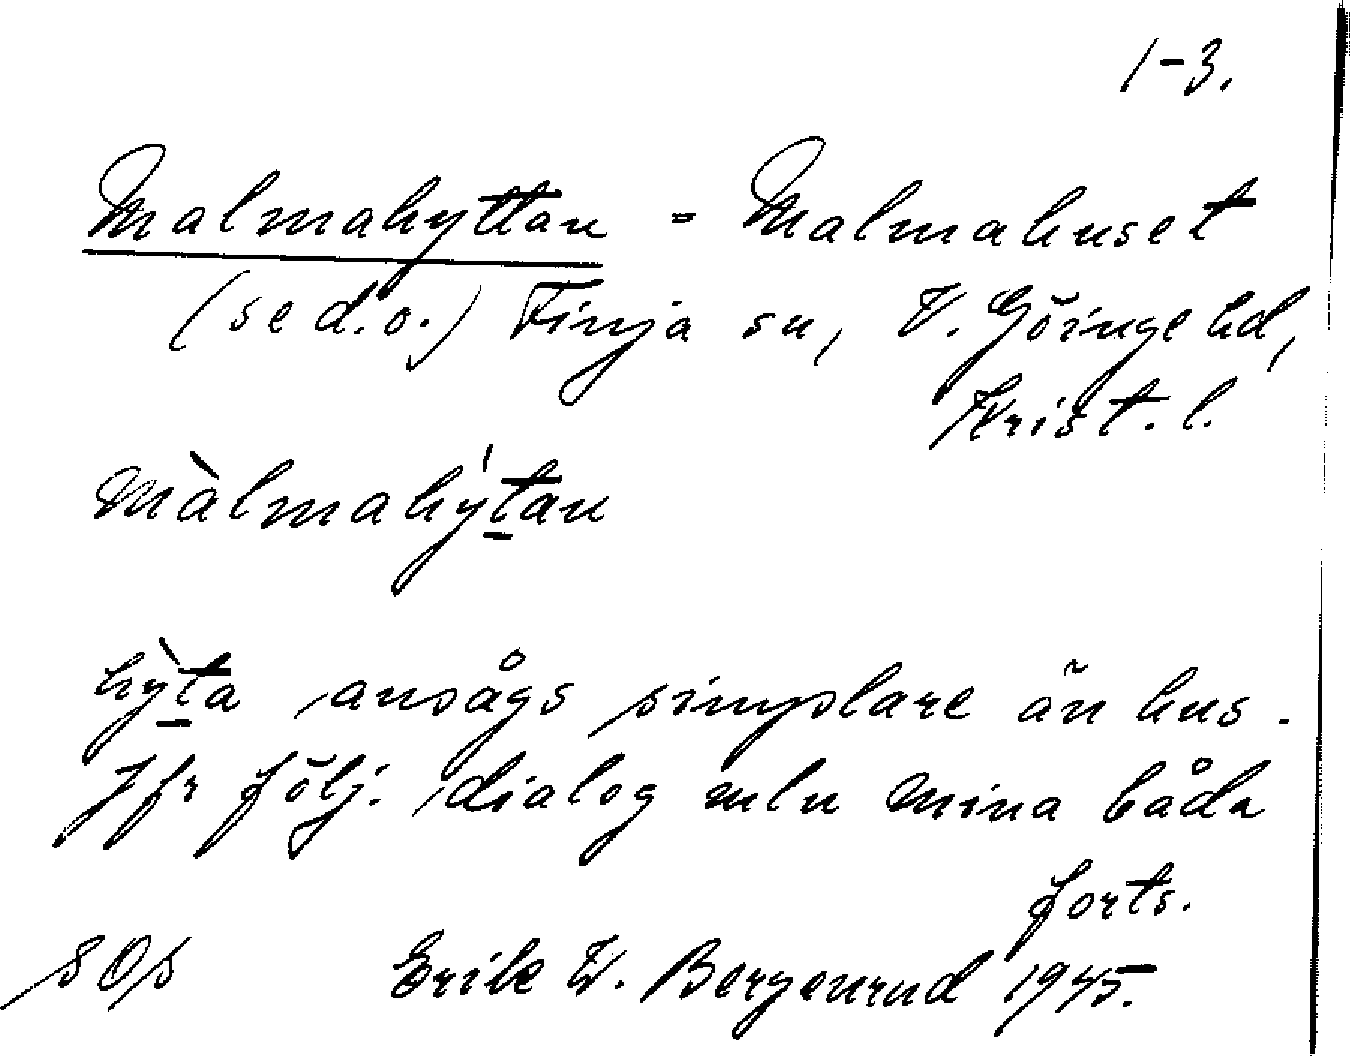 1-3.
Malmahyttan = Malmahuset
(se d.o.) Finja sn, V. Göinge hd,
Krist. l.
màlmahy̍t̲an
hỳt̲a ansågs simplare än hus.
Jfr följ. dialog mln mina båda
forts.
SOS Erik W. Bergenrud 1945.